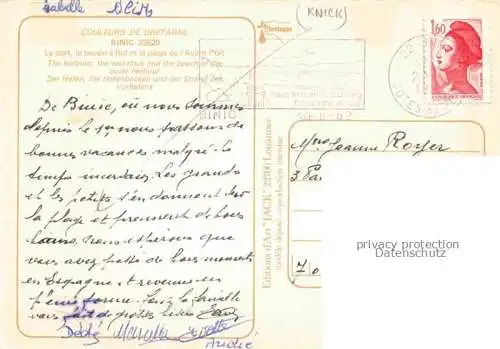 Isabelle
KNICK
COULEURS DE BRETAGNE
BINIC 22520
Le port, le bassin à flot et la plage de l'Avant-Port
The harbour, the
and the beach of the
outer harbour
Der Hafen, der Hafenbecken und der Strand des
Vorhafens
1,60
BINIC
De Binic, où nous sommes
depuis le 1er nous passons de
bonnes vacances malgré le
temps incertain. Les grands
et les petits s'en donnent sur
la plage et prennent de bons
bains. Nous espérons que
vous avez passé de bons moments
en Espagne et revenus en
pleine forme. Toute la famille
vous fait de grosses bises
Dédé Marcelle Yvette
André
Editions d'Art "JACK" 22700 Louannec
modèle déposé - reproduction interdite
Mme Jeanne Royer
3
privacy protection
Datenschutz